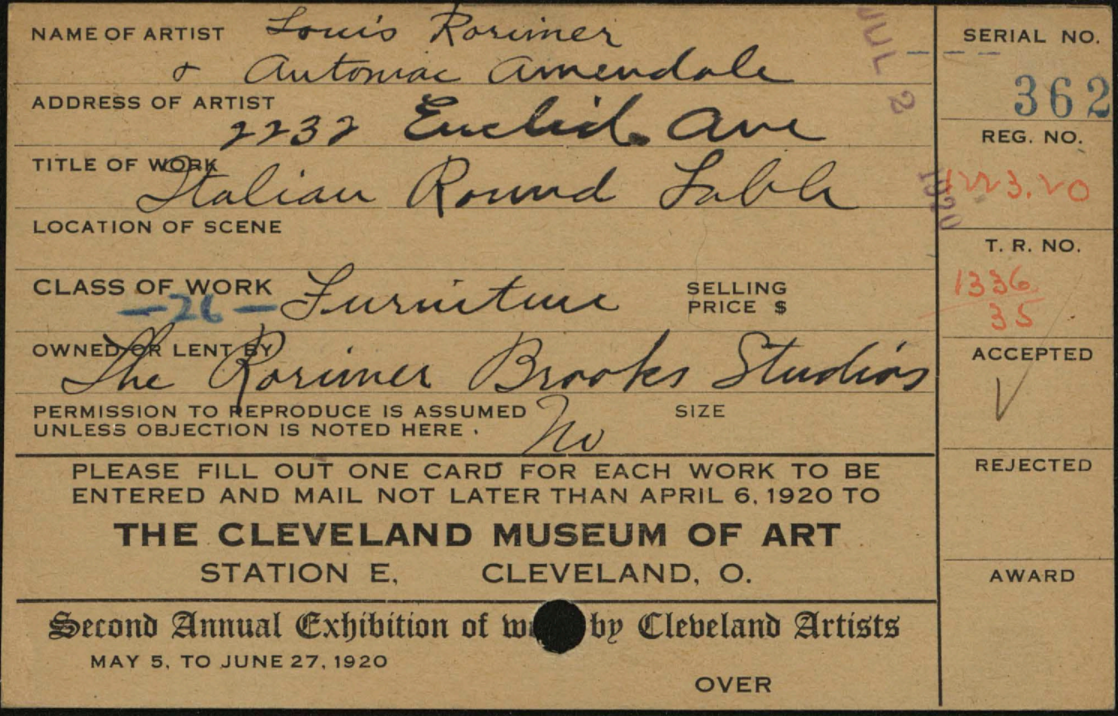 NAME OF ARTIST Louis Rorimer
& Antoniac Amendale
ADDRESS OF ARTIST
2232 Euclid Ave
TITLE OF WORK
Italian Round Table
LOCATION OF SCENE
CLASS OF WORK Furniture SELLING PRICE $
—26—
OWNED OR LENT BY
The Rorimer Brooks Studios
PERMISSION TO REPRODUCE IS ASSUMED
UNLESS OBJECTION IS NOTED HERE. No SIZE
PLEASE FILL OUT ONE CARD FOR EACH WORK TO BE
ENTERED AND MAIL NOT LATER THAN APRIL 6, 1920 TO
THE CLEVELAND MUSEUM OF ART
STATION E, CLEVELAND, O.
Second Annual Exhibition of by Cleveland Artists
MAY 5, TO JUNE 27, 1920
OVER
JUL 2 1920
SERIAL NO.
362
REG. NO.
1223.20
T. R. NO.
1336
35
ACCEPTED
√
REJECTED
AWARD